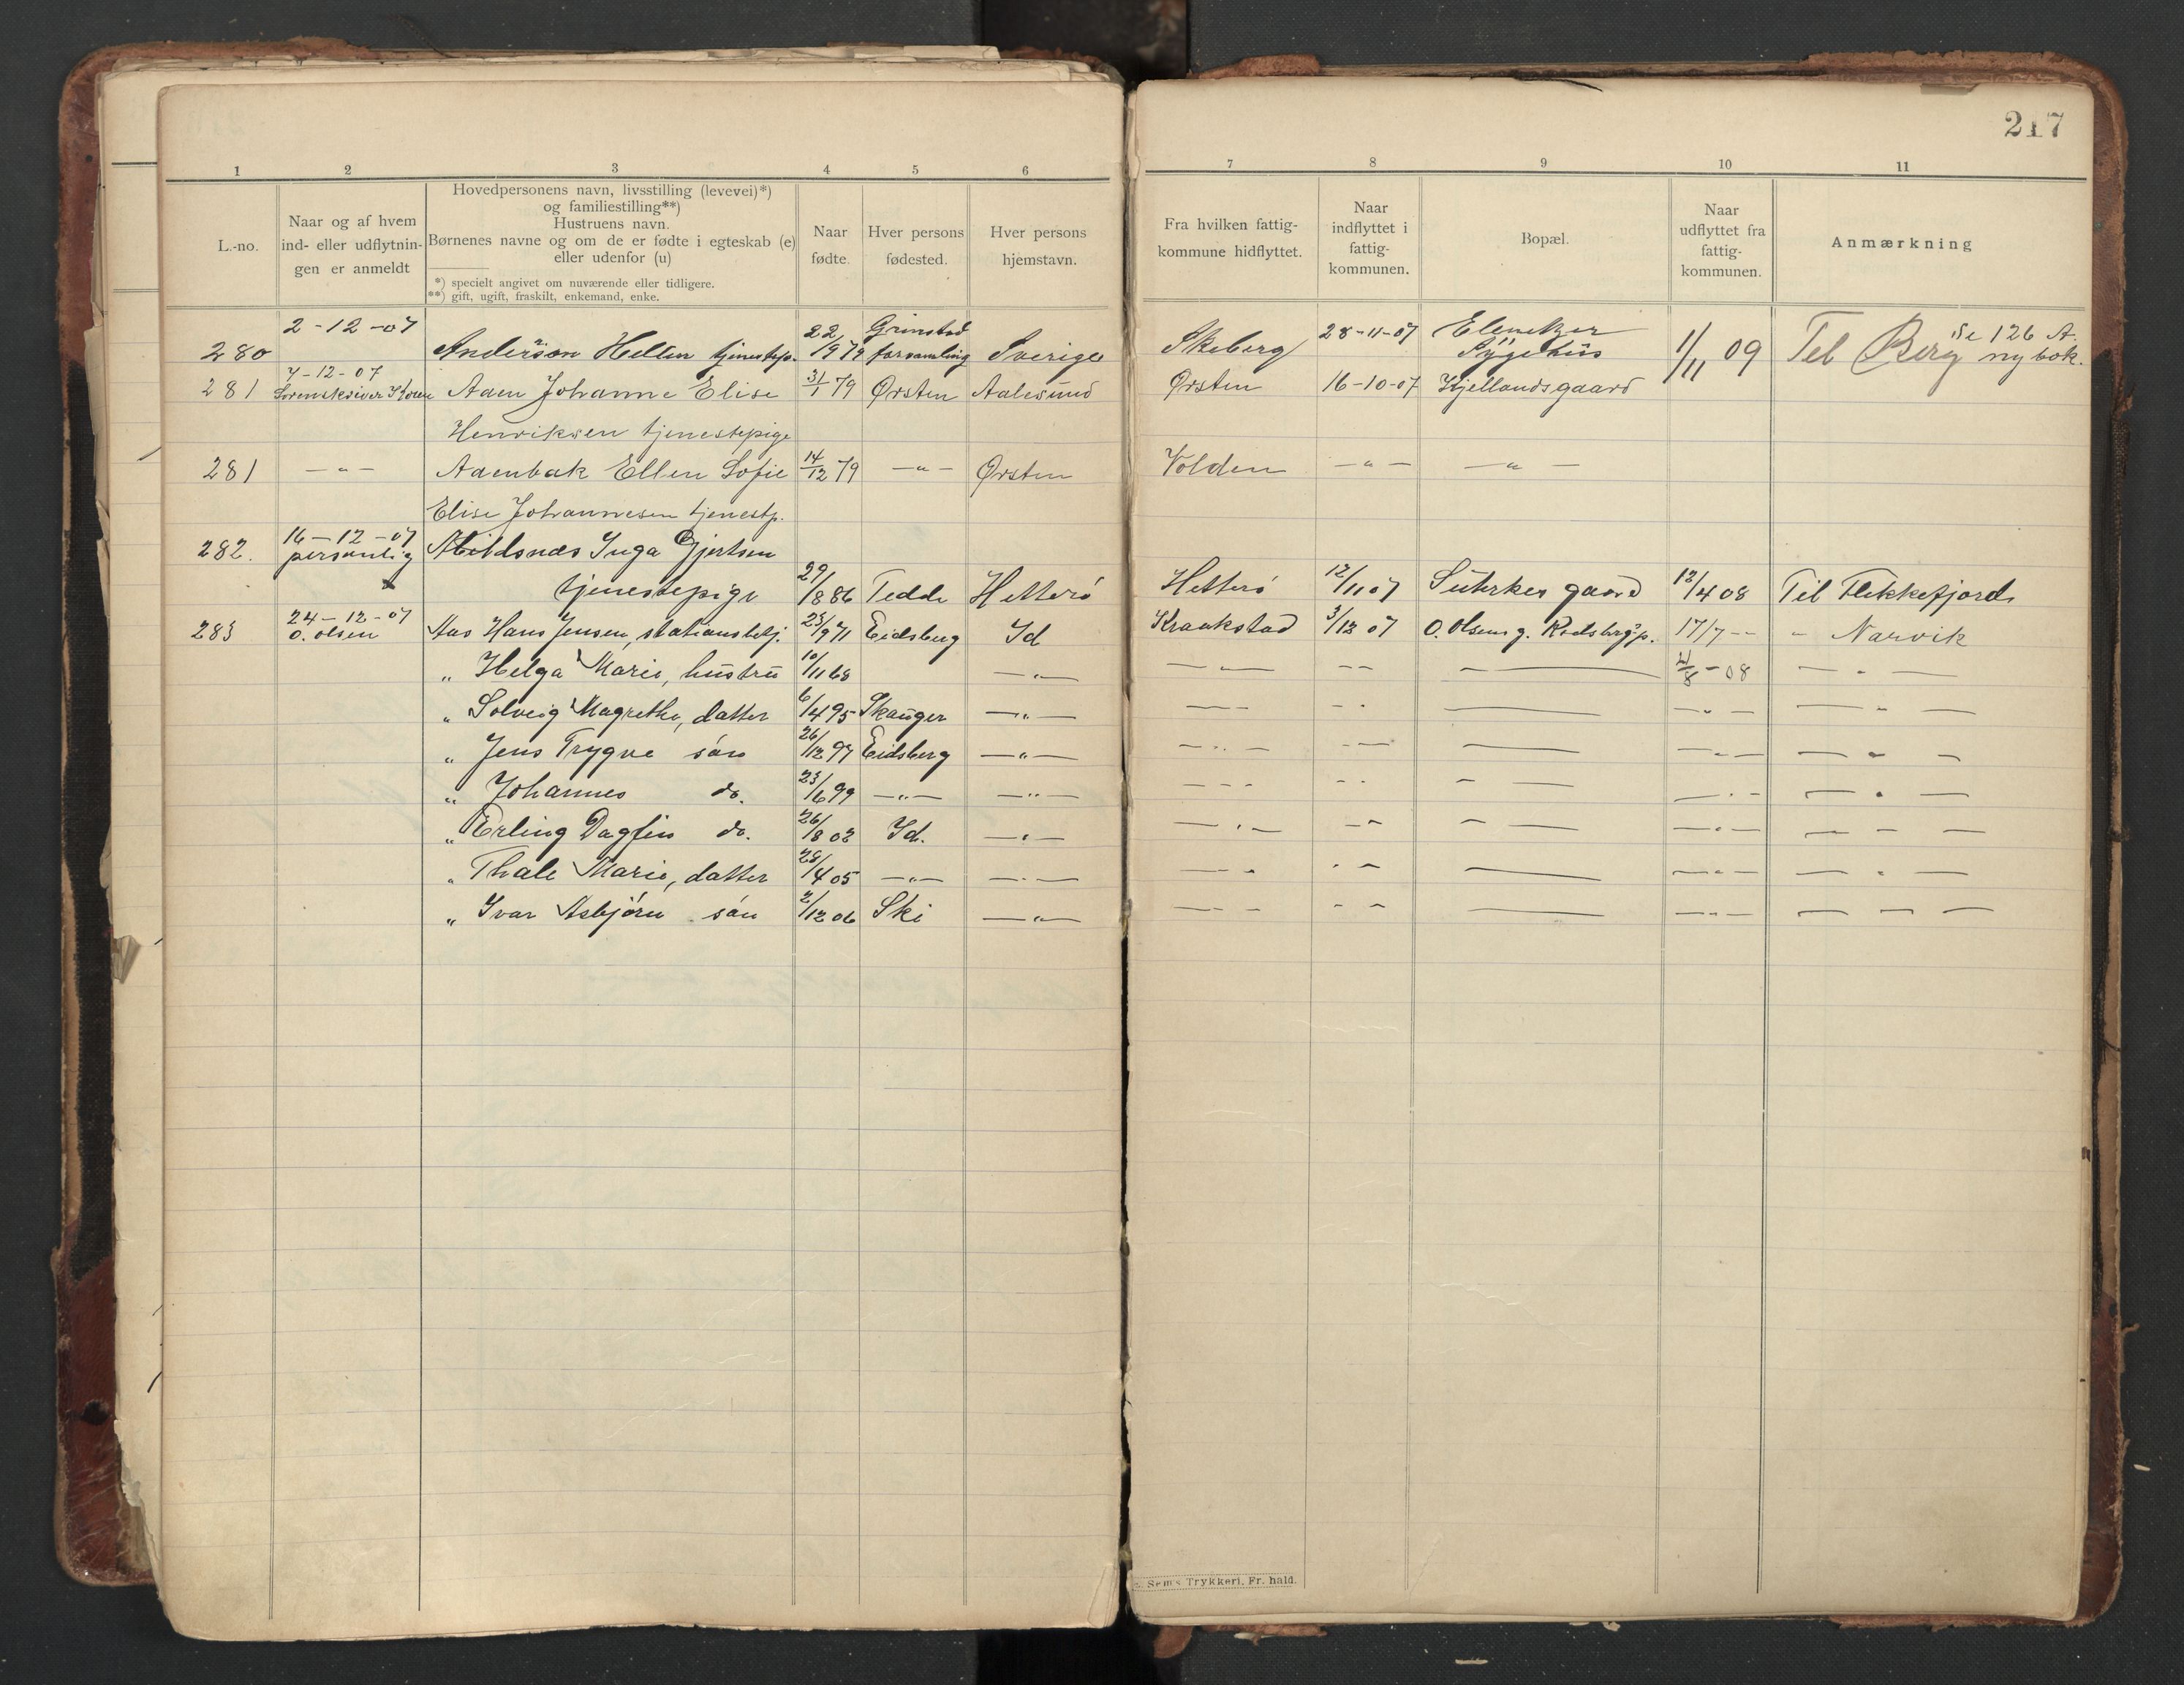 217
1 2 3 4 5 6 7 8 9 10 11
L.-no.
Naar og af hvem
ind- eller udflytnin-
gen er anmeldt
Hovedpersonens navn, livsstilling (levevei)*)
og familiestilling**)
Hustruens navn.
Børnenes navne og om de er fødte i egteskab (e)
eller udenfor (u)
*) specielt angivet om nuværende eller tidligere.
**) gift, ugift, fraskilt, enkemand, enke.
Naar
fødte.
Hver persons
fødested.
Hver persons
hjemstavn.
Fra hvilken fattig-
kommune hidflyttet.
Naar
indflyttet i
fattig-
kommunen.
Bopæl.
Naar
udflyttet fra
fattig-
kommunen.
Anmærkning
2-12-07 22 Grimstad 28-11-07 Se 126 A.
280 Anderson Hellen tjenestep. /9 79 forsamling Sverige Skeberg Sygehus 1/11 09 Til Berg ny bok.
7-12-07
281 Sorenskriver Aaen Johanne Elise 31/1 79 Ørsten Aalesund Ørsten 16-10-07 Kjellandsgaard
Henriksen tjenestepige
281 — " — Aaenbak Ellen Sofie 14/12 79 — " — Ørsten Volden — " — — " —
Elise Johannesen tjenestp.
16-12-07
282. personlig Abildsnes Inga Gjertsen
tjenestepige 29/8 86 Tedde Hetterö Hetterö 12/11 07 gaard 12/4 08 Til Flekkefjord
24-12-07
283 O. Olsen Aas Hans Jensen, stationsbetj. 23/9 71 Eidsberg Id Kraakstad 3/12 07 O. Olsens g. Rødsbergp. 17/7 -- " Narvik
" Helga Marie, hustru 10/11 68 — " — — " — — — —— 21/8 - 08 — " —
" Solveig Magrethe, datter 6/4 95 Skauger — " — — — - . —— — " — — " —
" Jens Trygve sön 26/12 97 Eidsberg — " — — " — — — —— — " — — " —
" Johannes do. 23/6 99 — " — — " — — — - - —— — " — — " —
" Erling Dagfin do. 26/8 02 Id. — " — — " — — — —— — " — — — —
" Thale Marie, datter 28/4 05 — " — — " — — — - - —— — " — — " —
" Ivar Asbjörn sön 2/12 06 Ski — " — — — — - - —— — " — — — —
Sems Trykkeri, Fr.hald.